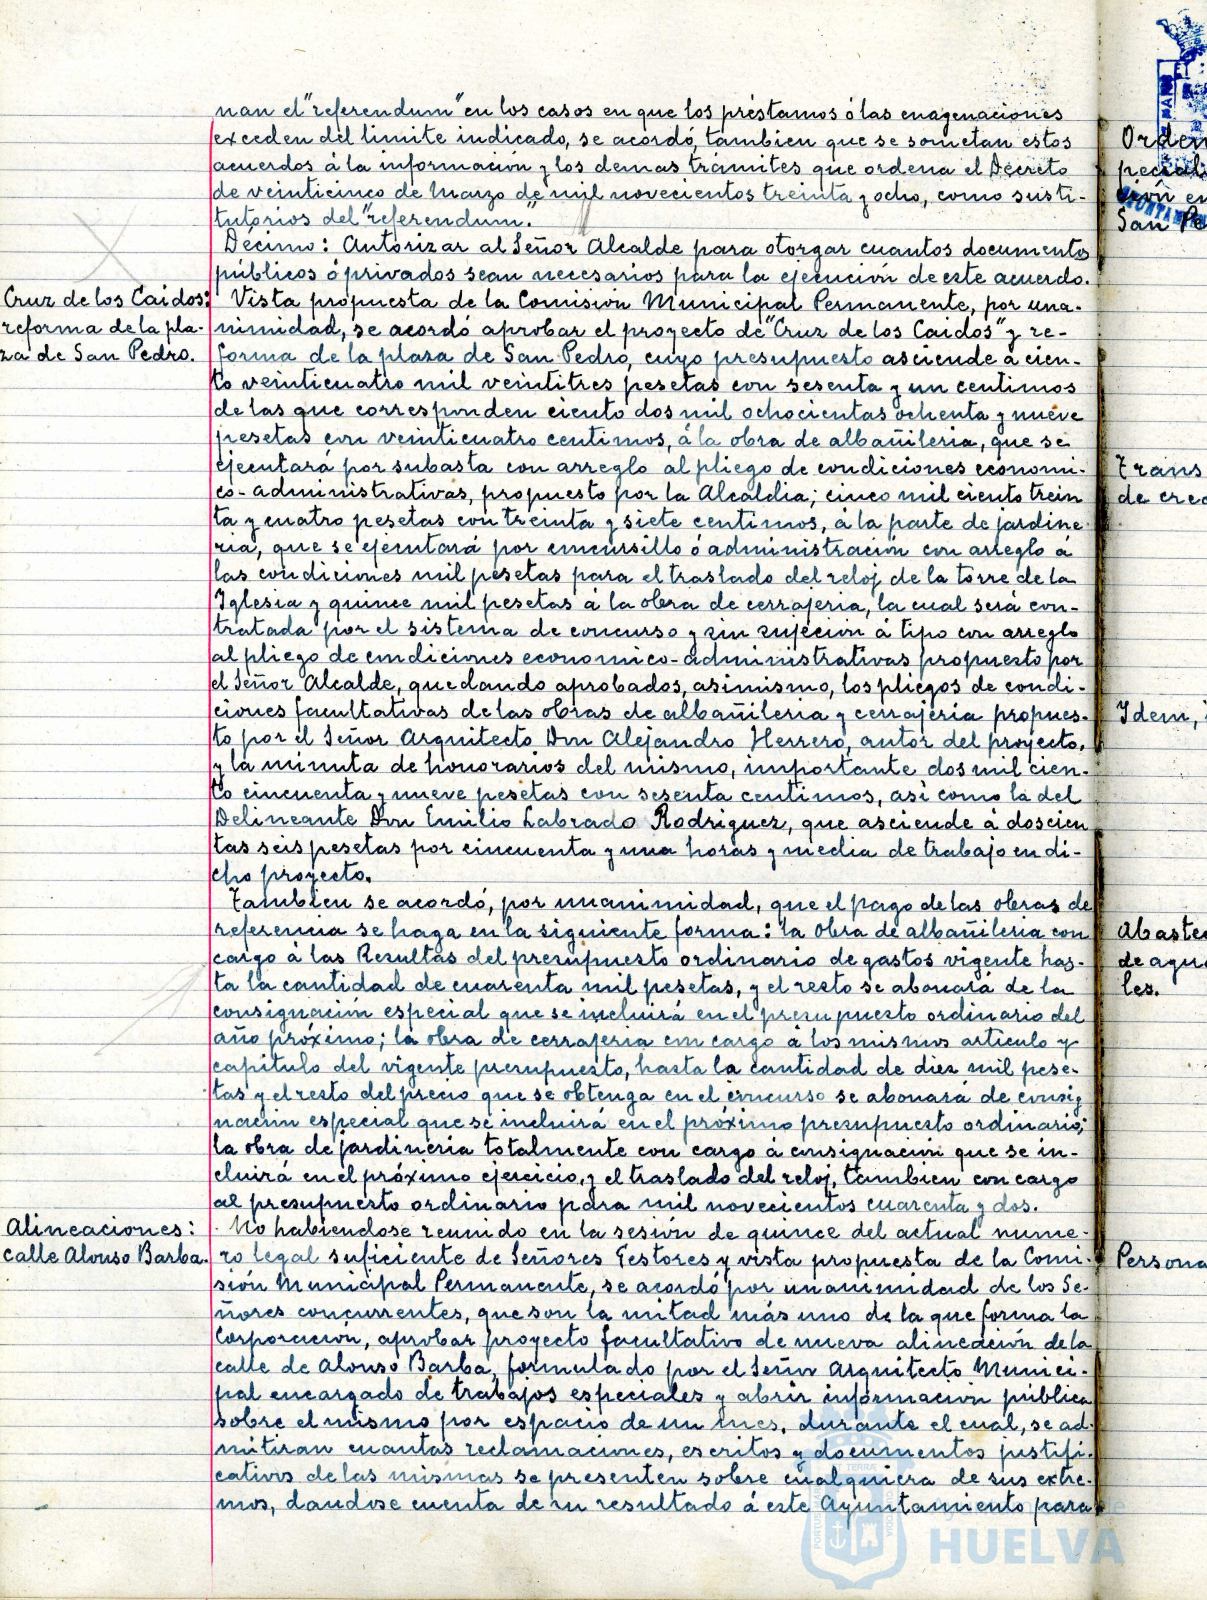 nan el "referendum" en los casos en que los préstamos ó las enagenaciones
exceden del limite indicado, se acordó, tambien que se sometan estos
acuerdos á la información y los demas trámites que ordena el Decreto
de veinticinco de Marzo de mil novecientos treinta y ocho, como susti-
tutorios del "referendum".
Décimo: Autorizar al Señor Alcalde para otorgar cuantos documentos
públicos ó privados sean necesarios para la ejecución de este acuerdo.
Cruz de los Caidos:
reforma de la pla-
za de San Pedro.
Vista propuesta de la Comisión Municipal Permanente, por una-
nimidad, se acordó aprobar el proyecto de "Cruz de los Caidos" y re-
forma de la plaza de San Pedro, cuyo presupuesto asciende á cien-
to veinticuatro mil veintitres pesetas con sesenta y un centimos
de las que corresponden ciento dos mil ochocientas ochenta y nueve
pesetas con veinticuatro centimos, á la obra de albañileria, que se
ejecutará por subasta con arreglo al pliego de condiciones economi-
co-administrativas, propuesto por la Alcaldia; cinco mil ciento trein
ta y cuatro pesetas con treinta y siete centimos, á la parte de jardine
ria, que se ejecutará por concursillo ó administración con arreglo á
las condiciones mil pesetas para el traslado del reloj de la torre de la
Iglesia y quince mil pesetas á la obra de cerrajeria, la cual será con-
tratada por el sistema de concurso y sin sujeción á tipo con arreglo
al pliego de condiciones economico-administrativas propuesto por
el Señor Alcalde, quedando aprobados, asimismo, los pliegos de condi-
ciones facultativas de las obras de albañileria y cerrajeria propues-
to por el Señor Arquitecto Don Alejandro Herrero, autor del proyecto,
y la minuta de honorarios del mismo, importante dos mil cien-
to cincuenta y nueve pesetas con sesenta centimos, asi como la del
Delineante Don Emilio Labrado Rodriguez, que asciende á doscien
tas seis pesetas por cincuenta y una horas y media de trabajo en di-
cho proyecto.
Tambien se acordó, por unanimidad, que el pago de las obras de
referencia se haga en la siguiente forma: la obra de albañileria con
cargo á las Resultas del presupuesto ordinario de gastos vigente has-
ta la cantidad de cuarenta mil pesetas, y el resto se abonará de la
consignación especial que se incluirá en el presupuesto ordinario del
año próximo; la obra de cerrajeria con cargo á los mismos articulo y
capitulo del vigente presupuesto, hasta la cantidad de diez mil pese-
tas y el resto del precio que se obtenga en el concurso se abonará de consig
nación especial que se incluirá en el próximo presupuesto ordinario;
la obra de jardineria totalmente con cargo á consignación que se in-
cluirá en el próximo ejercicio, y el traslado del reloj, tambien con cargo
al presupuesto ordinario para mil novecientos cuarenta y dos.
Alineaciones:
calle Alonso Barba.
No habiendose reunido en la sesión de quince del actual nume-
ro legal suficiente de Señores Gestores y vista propuesta de la Comi-
sión Municipal Permanente, se acordó por unanimidad de los Se-
ñores concurrentes, que son la mitad más uno de la que forma la
Corporación, aprobar proyecto facultativo de nueva alineación de la
calle de Alonso Barba, formulado por el Señor Arquitecto Munici-
pal encargado de trabajos especiales y abrir información pública
sobre el mismo por espacio de un mes, durante el cual, se ad-
mitiran cuantas reclamaciones, escritos y documentos justifi-
cativos de las mismas se presenten sobre cualquiera de sus extre-
mos, dandose cuenta de su resultado á este Ayuntamiento para
Orden
pecial
San Pe
Trans
de cred
Idem,
Abaste
de agua
les.
Persona
HUELVA